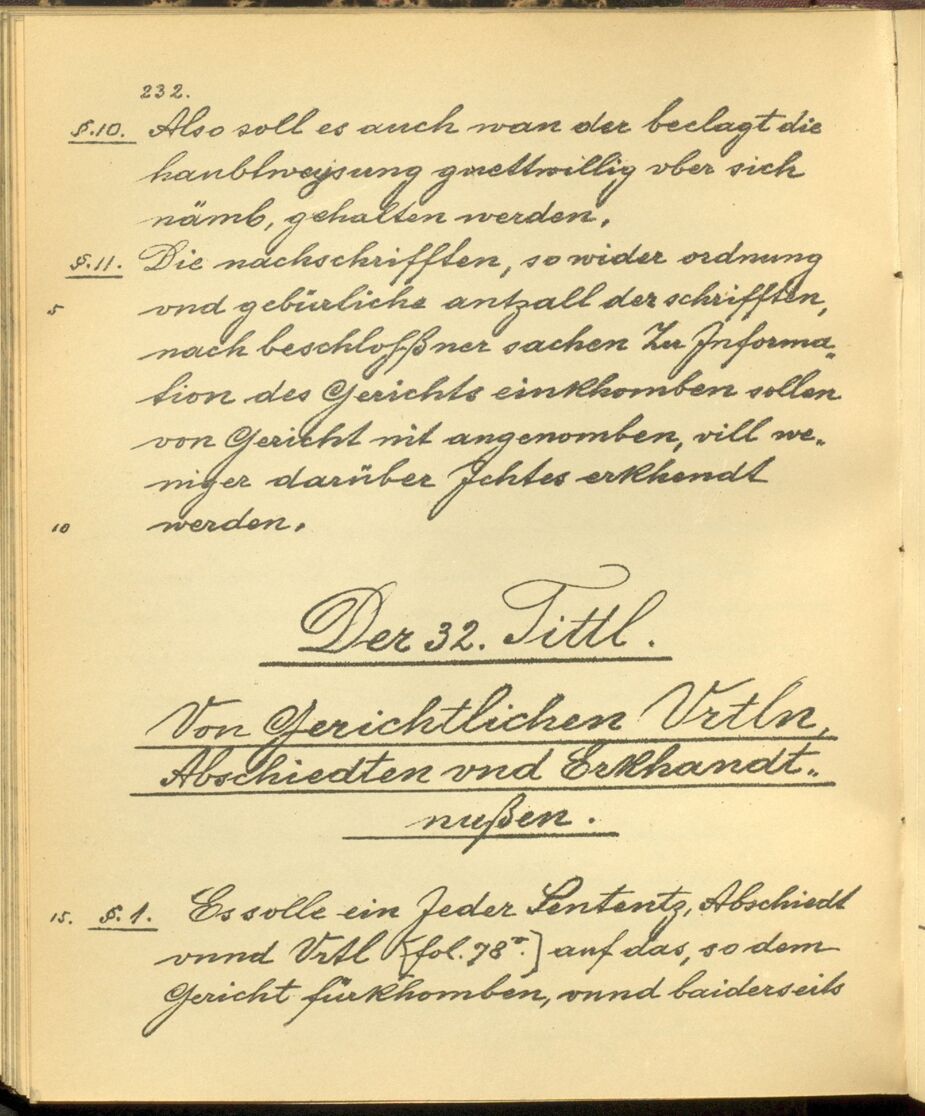 232.
§.10. Also soll es auch wan der beclagt die
haubtweysung guettwillig vber sich
nämb, gehalten werden.
§.11. Die nachschrifften, so wider ordnung
5 vnd gebürliche antzall der schrifften,
nach beschloßner sachen Zu Informa„
tion des Gerichts einkhomben sollen
von Gericht nit angenomben, vill we„
niger darüber Ichtes erkhendt
10 werden.
Der 32. Tittl.
Von Gerichtlichen Vrtln,
Abschiedten vnd Erkhandt„
nußen.
15. §. 1. Es solle ein Jeder Sententz, Abschiedt
vnnd Vrtl [fol. 78r.] auf das, so dem
Gericht fürkhomben, vnnd baiderseits